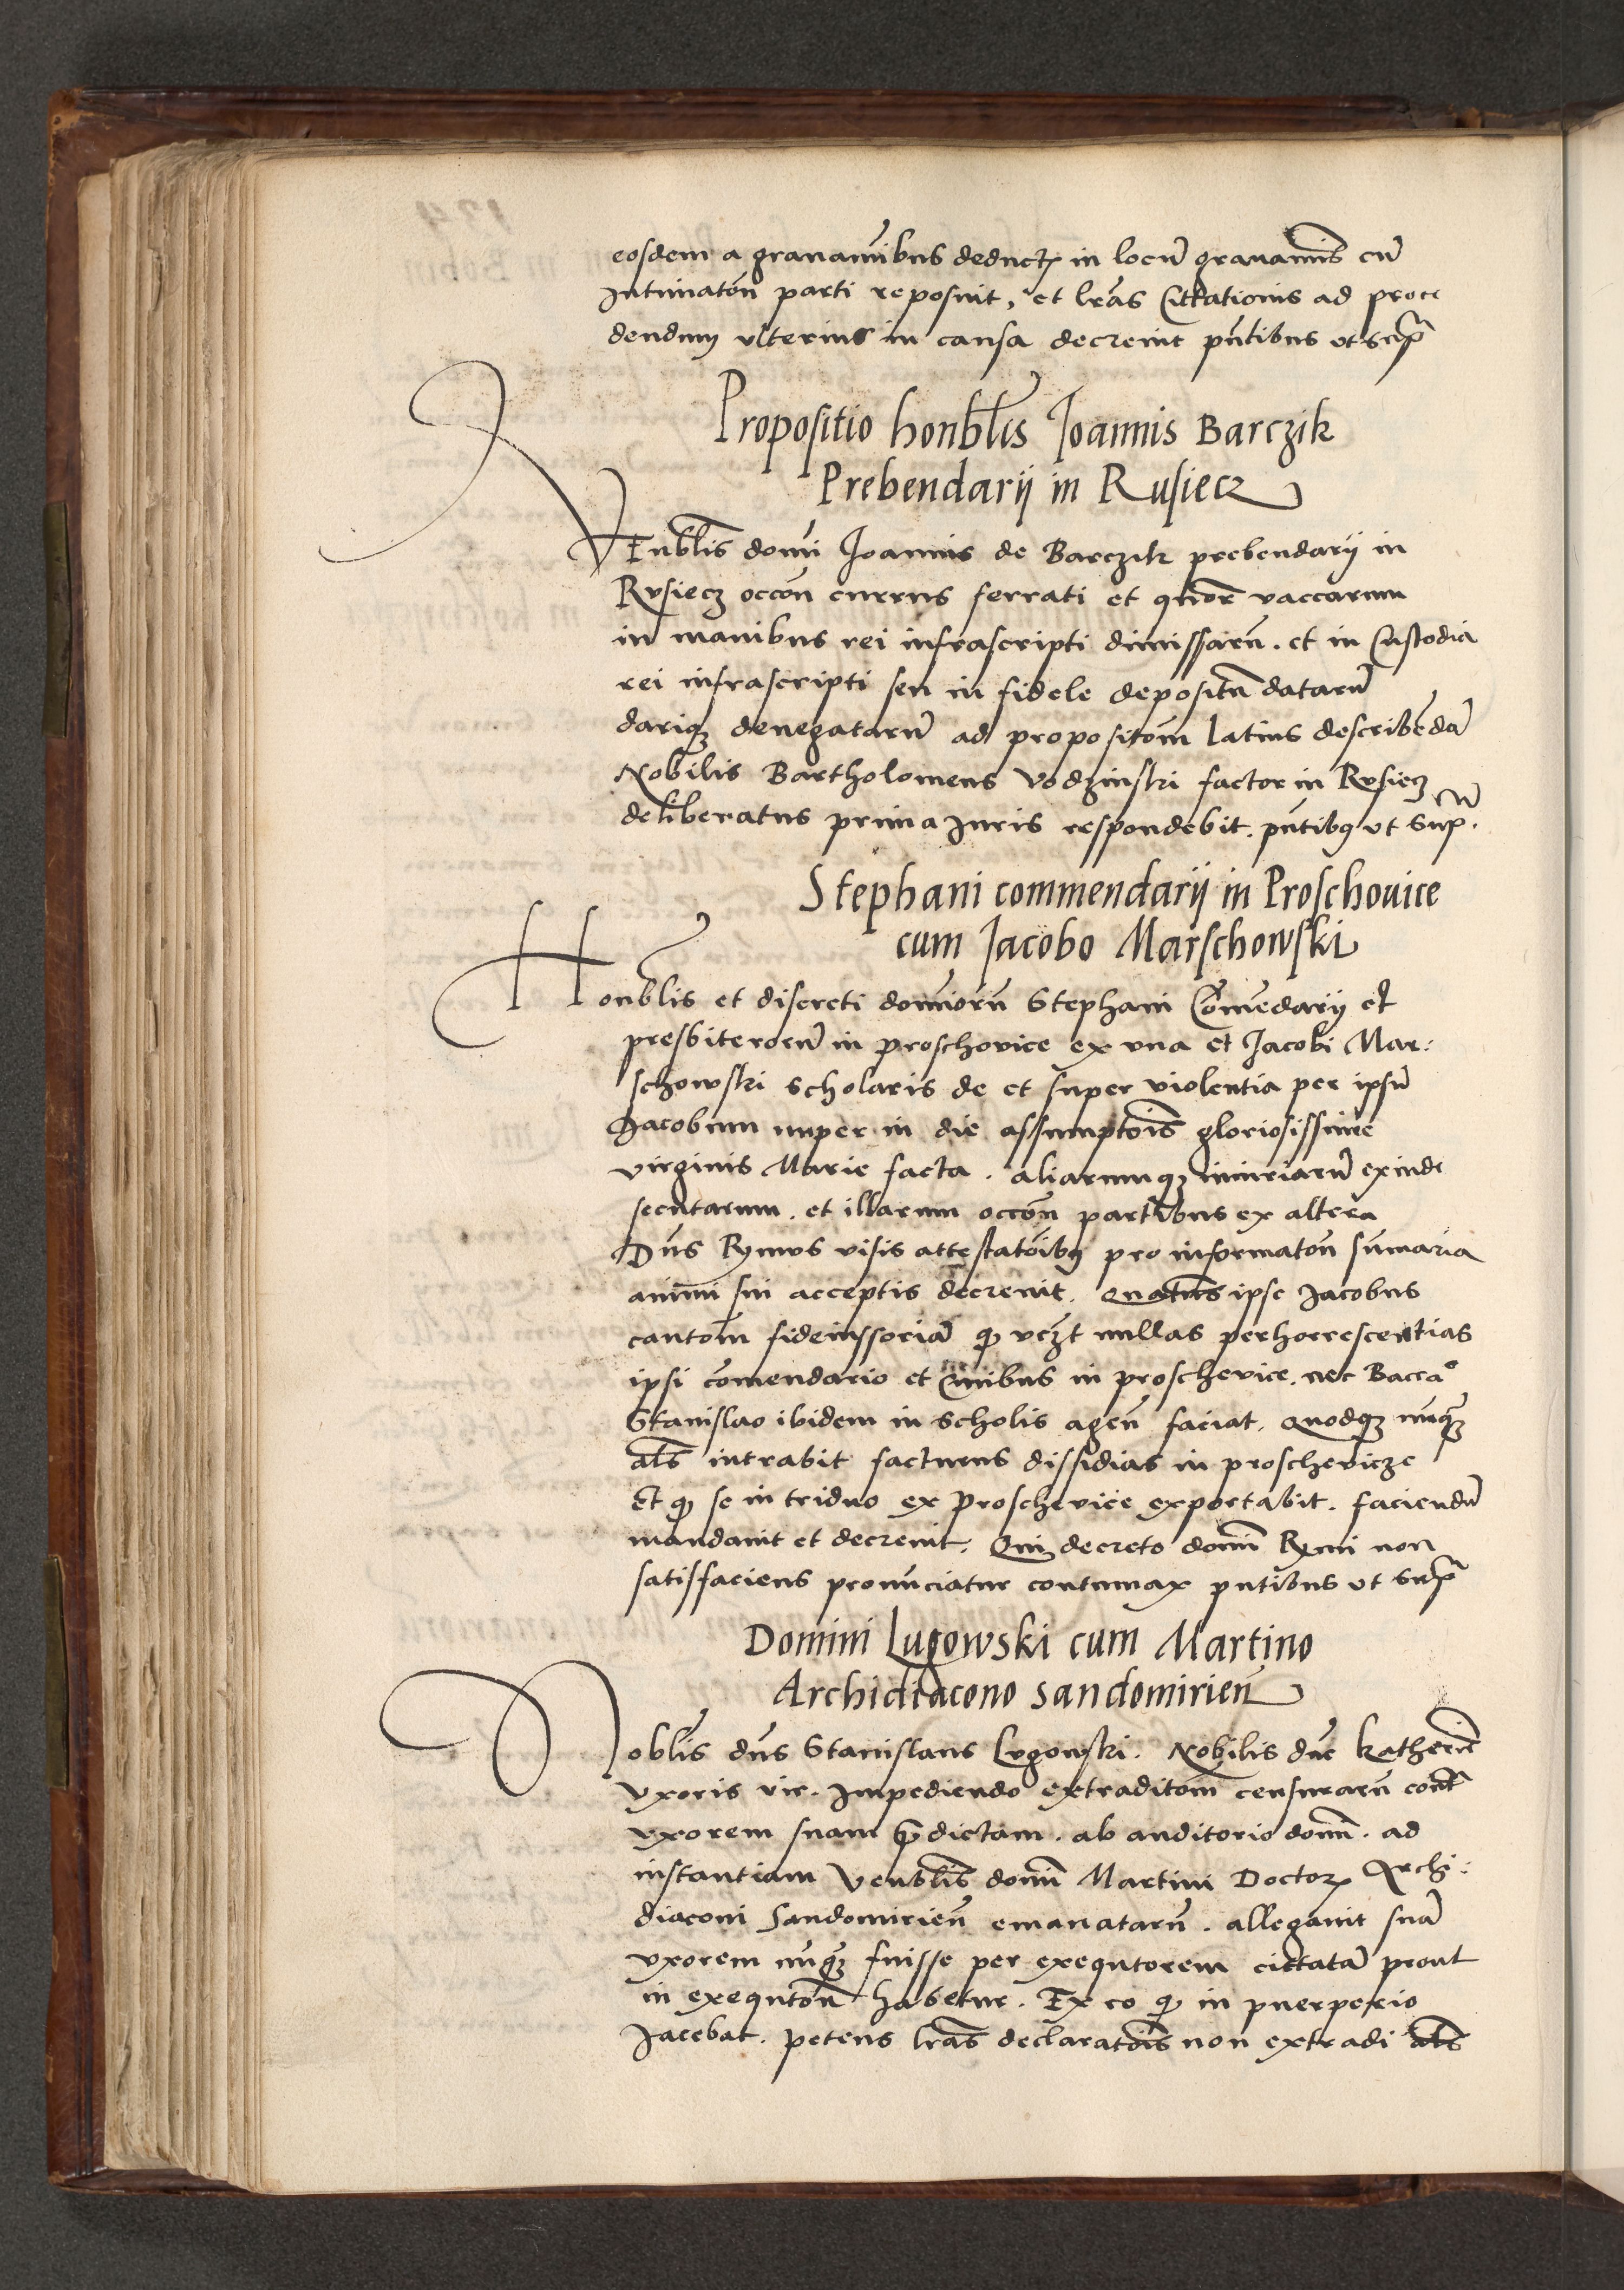 eosdem a grauamībus deductꝫ in locū grauamīs cū
Intimatōn parti reposuit, et lrās Cittationis ad proce
dendum vlterius in causa decreuit pn̄tibus vt supꝛ
Propositio honblis Joannis Barczik
Prebendarij in Rusiecz
VEnblis domī Joannis de Barczik prebendarij in
Rvsiecz occōn currus ferrati et qtuor vaccarum
in manibus rei infrascripti dimissarū. et in Custodia
rei infrascripti seu in fidele depositū datarū
dariqꝫ denegatarū ad propositōm latius describēdā
Nobilis Bartholomeus Vodzinski factor in Rvsiecz
deliberatus prima Iuris respondebit. pn̄tibꝫ vt sup.
Stephani commendarij in Proschouice
cum Jacobo Marschowski
Honblis et discreti domiorū Stephani Comēdarij et
presbiterorū in proschovice ex vna et Jacobi Mar:
schowski scholaris de et super violentia per ipsū
Jacobum nuper in die assumptōis gloriosissime
virginis Marie facta. aliarumqꝫ iniuriarū exinde
secutarum. et illarum occōn partibus ex altera
Dn̄s Rymvs visis attestatōibꝫ pro informatōn sūmaria
animi sui acceptis decreuit. Quatn̄s ipse Jacobus
cautōm fideiussoriā qꝫ vcꝫt nullas perhorrescentias
ipsi cōmendario et Ciuibus in proschevice. nec Bacca°
Stanislao ibidem in scholis agen̄ faciat. Quodqꝫ nūqꝫ
als intrabit facturus dissidias in proschevicze
Et qꝫ se in triduo ex proschevice exportabit. faciendū
mandauit et decreuit. Qui decreto domī Rymi non
satisfaciens pronūciatur contumax pn̄tibus vt supꝛ
Domini Lugowski cum Martino
Archidiacono sandomirien̄
Noblis dn̄s Stanislaus Lvgowski. Nobilis dn̄e Katherīe
vxoris vir. Impediendo extraditōm censurarū contꝛ
vxorem suam p̄dictam. ab auditorio domī. ad
instantiam Venblis domī Martini Doctorꝫ Archi:
diaconi Sandomirien̄ emanatarū. allegauit suā
vxorem nūqꝫ fuisse per exequtorem cittatā prout
in exequtōn habetur. Ex eo qꝫ in puerperio
Jacebat. petens lrās declaratōis non extradi als